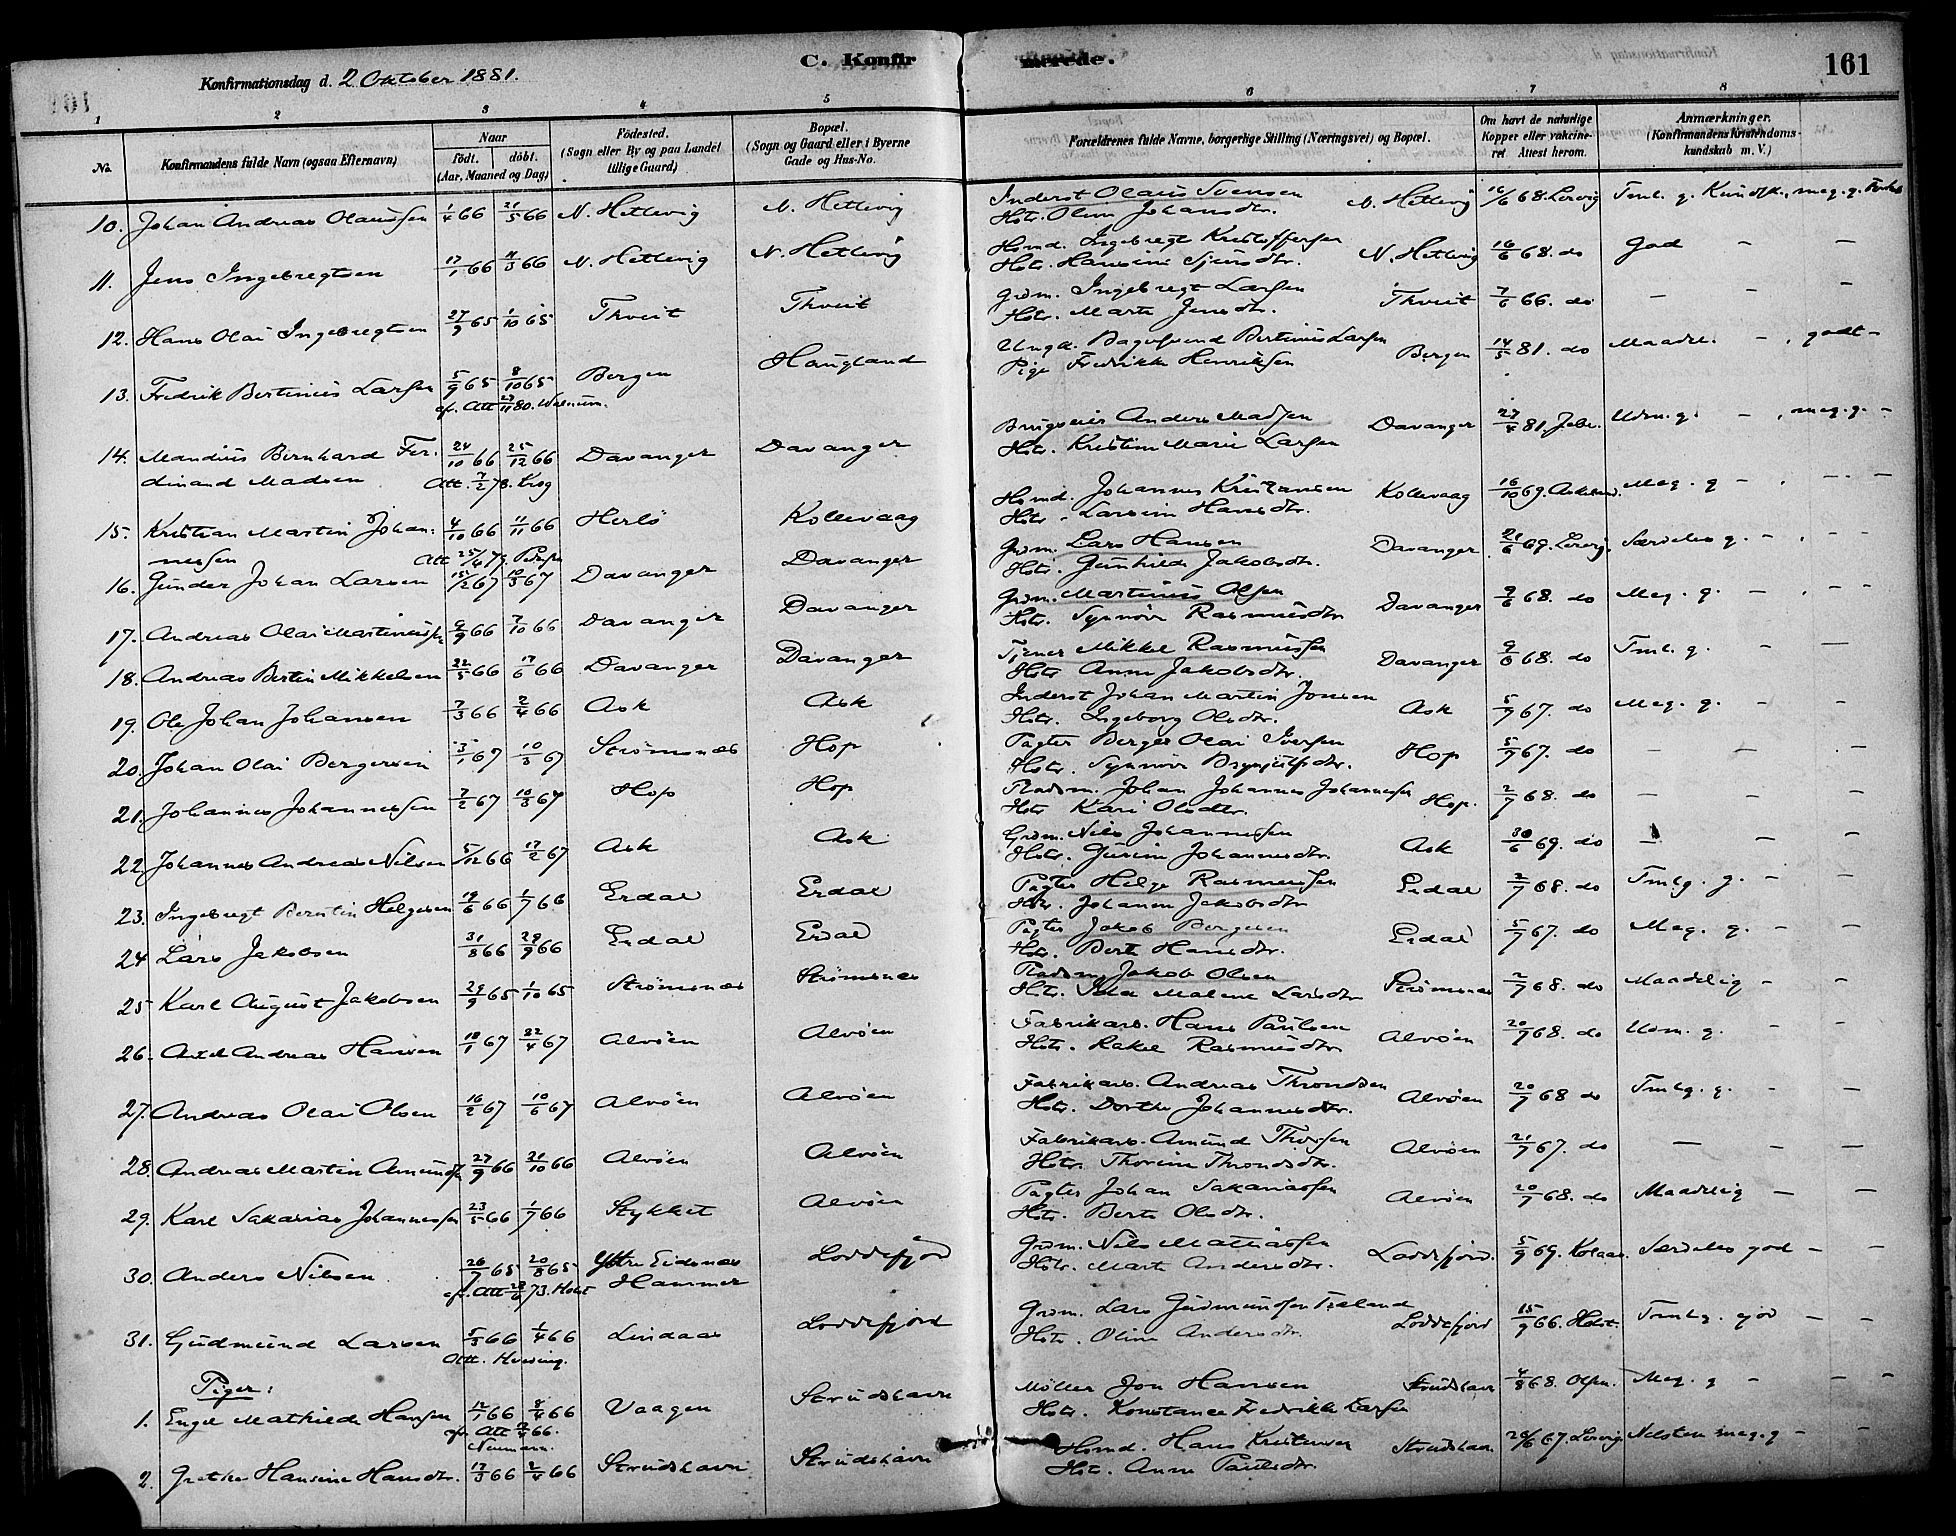 C. Konfirmerede.
161
Konfirmationsdag d. 2 Oktober 1881.
1 2 3 4 5 6 7 8
No. Konfirmandens fulde Navn (ogsaa Efternavn) Naar født. døbt. (Aar, Maaned og Dag) Fødested. (Sogn eller By og paa Landet tillige Gaard) Bopæl. (Sogn og Gaard eller i Byerne Gade og Hus-No. Forældrenes fulde Navne, borgerlige Stilling (Næringsvei) og Bopæl. Om havt de naturlige Kopper eller vakcineret Attest herom. Anmærkninger. (Konfirmandens Kristendomskundskab m. V.)
10. Johan Andreas Olaussen 1/4 66 21/5 66 N. Hetlevig N. Hetlevig Inderst Olaus Svensen N. Hetlevig 16/6 68. Lervig Tml. g. Kundsk., meg. g.
Hstr. Olina Johansdtr.
11. Jens Ingebregtsen 17/1 66 11/3 66 N. Hetlevig N. Hetlevig Hsmd. Ingebregt Kristoffersen N. Hetlevig 16/6 68. do God - -
Hstr. Hansine Sjursdtr.
12. Hans Olai Ingebregtsen 27/9 65 1/10 65 Thveit Thveit Grdm. Ingebregt Larsen Thveit 7/6 66. do - - -
Hstr. Marta Jensdtr.
13. Fredrik Bertinius Larsen 5/9 65 8/10 65 Bergen Haugland Ungk. Bagersvend Bertinius Larsen Bergen 14/5 81. do Maadel. -, godt -
ef. Att 27/11 80. Walnum. Pige Fredrikke Henriksen
14. Mandius Bernhard Fer- 24/10 66 25/12 66 Davanger Davanger Brugseier Anders Madsen Davanger 27/4 81. Jebe. Udm. g. -, meg. g. -
dinand Madsen Att. 7/2 78. Krog Hstr. Kristine Marie Larsen
15. Kristian Martin Johan- 4/10 66 11/11 66 Herlø Kollevaag Hsmd. Johannes Kristiansen Kollevaag 16/10 69. Meg. g - , - -
nesen Att 25/4 79. Hstr. Larsine Hansdtr.
16. Gunder Johan Larsen 15/2 67 10/3 67 Davanger Davanger Grdm. Lars Hansen Davanger 21/6 69. Lervig. Særdeles g. - , - -
Hstr. Gunhilde Jakobsdtr.
17. Andreas Olai Martiniussen 9/9 66 7/10 66 Davanger Davanger Grdm. Martinius Olsen Davanger 9/6 68. do Meg. g. - , - -
Hstr. Synnøve Rasmusdtr
18. Andreas Bertin Mikkelsen 22/5 66 17/6 66 Davanger Davanger Tjener Mikkel Rasmussen Davanger 9/6 68. do Tml. g. - -
Hstr Anna Jakobsdtr.
19. Ole Johan Johansen 7/3 66 2/4 66 Ask Ask Inderst Johan Martin Jonsen Ask 5/9 67. do Meg. g. - -
Hstr. Ingeborg Olsdtr.
20. Johan Olai Bergersen 3/1 67 10/3 67 Strømsnæs Hop Pagter Berger Olai Iversen Hop 5/7 67. do - - -
Hstr. Synnøve Brynjulfsdtr.
21. Johannes Johannessen 7/2 67 10/3 67 Hop Hop Pladsm. Johan Johannes Johannesen Hop. 2/7 68. do - - -
Hstr Kari Olsdtr.
22. Johannes Andreas Nilsen 5/12 66 17/2 67 Ask Ask Grdm. Nils Johannessen Ask 30/6 69. do - - -
Hstr. Gurine Johannesdtr.
23. Ingebregt Berntin Helgesen 19/6 66 1/7 66 Erdal Erdal Pagter Helge Rasmussen Erdal 2/7 68. do Tmlg. g. - -
Hstr. Johanna Jakobsdtr
24 Lars Jakobsen 31/8 66 29/9 66 Erdal Erdal Pagter Jakob Bergesen Erdal 5/7 67. do Meg. g. - -
Hstr. Berte Hansdtr.
25 Karl August Jakobsen 29/9 65 1/10 65 Strømsnæs Strømsnæs Pladsm. Jakob Olsen Strømsnæs 2/7 68. do Maadelig - -
Hstr. Ida Malene Larsdtr
26. Axel Andreas Hansen 18/1 67 22/4 67 Alvøen Alvøen Fabrikarb. Hans Paulsen Alvøen 20/7 68. do Udm. g. - -
Hstr. Rakel Rasmusdtr.
27. Andreas Olai Olsen 16/2 67 10/6 67 Alvøen Alvøen Fabrikarb. Andreas Throndsen Alvøen 20/7 68 do Tmlg. g. - -
Hstr. Dorthe Johannesdtr.
28. Andreas Martin Amundsen 27/9 66 21/10 66 Alvøen Alvøen Fabrikarb. Amund Thorsen Alvøen 21/7 67. do - - -
Hstr. Thorine Throndsdtr.
29. Karl Sakarias Johannessen 23/5 66 1/7 66 Stykket Alvøen Pagter Johan Sakariassen Alvøen 20/7 68. do Maadelig - -
Hstr. Berta Olsdtr.
30. Anders Nilsen 26/7 65 20/8 65 Ytre Eidsnæs Loddefjord Grdm. Nils Mathiassen Loddefjord. 5/9 69. Særdeles god - -
ef. Att 28/6 73. Holst Hammer Hstr. Marta Andersdtr.
31. Gudmund Larsen 5/3 66 1/4 66 Lindaas Loddefjord Grdm. Lars Gudmundsen Træland Loddefjord 15/9 66. Holst. Tmlg. god - -
Att. Hvoslng. Hstr. Oline Andersdtr.
Piger:
1. Engel Mathilde Hansen 12/1 66 8/4 66 Vaagen Strudshavn Møller Jon Hansen Strudshavn 4/8 68. Olsen. Meg. g - - -
ef. Att 66. Neumann. Hstr. Konstance Fredrikke Larsen
2. Grethe Hansine Hansdtr. 17/3 66 2/4 66 Strudshavn Strudshavn Hsmd. Hans Kristensen Strudshavn 26/6 67. Lervig meg. g - -
Hstr. Anna Paulsdtr.